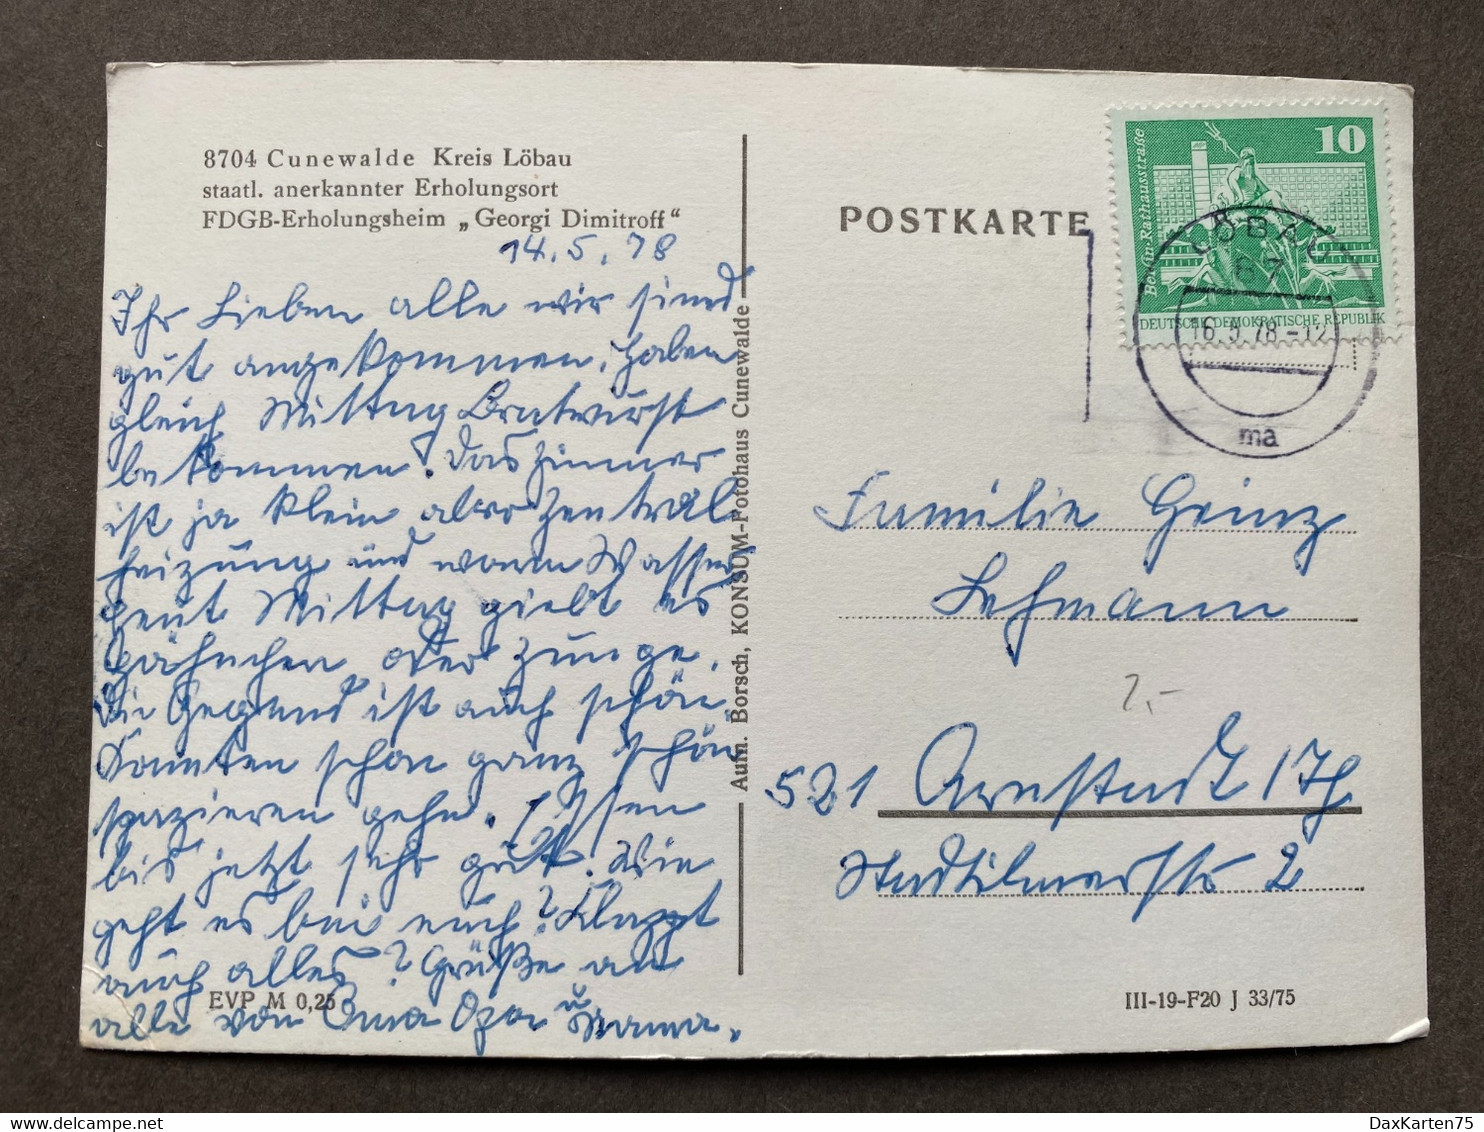 8704 Cunewalde Kreis Löbau
staatl. anerkannter Erholungsort
FDGB-Erholungsheim „Georgi Dimitroff“
14.5.78
Ihr Lieben alle wir sind
gut angekommen, haben
gleich Mittag Bratwurst
bekommen. Das Zimmer
ist ja klein aber Zentral
heizung und warm Wasser
heut Mittag giebt es
Hähnchen oder Zunge.
Die Gegend ist auch schön
konnten schon ganz schön
spazieren gehn. Essen
bis jetzt sehr gut. Wie
geht es bei euch? Klappt
auch alles? Grüße an
alle von Oma Opa u
EVP M 0,25
Aufn. Borsch, KONSUM-Fotohaus Cunewalde
POSTKARTE
10
Berlin-Rathausstraße
DEUTSCHE DEMOKRATISCHE REPUBLIK
LÖBAU
87
16.5.78-12
ma
Familie Heinz
Lehmann
2.-
521 Arnstadt / Th
Stadtilmerstr 2
III-19-F20 J 33/75
DaxKarten75